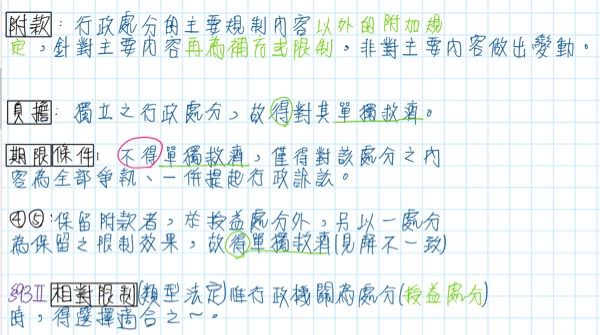 附款：行政處分的主要規制內容以外的附加規
定，針對主要內容再為補充或限制，非對主要內容做出變動。
負擔：獨立之行政處分，故得對其單獨救濟。
期限條件：不得單獨救濟，僅得對該處分之內
容為全部爭執、一併提起行政訴訟。
④⑤：保留附款者，於授益處分外，另以一處分
為保留之限制效果，故得單獨救濟(見解不一致)
§93Ⅱ相對限制(類型法定)惟行政機關為處分(授益處分)
時，得選擇適合之～。